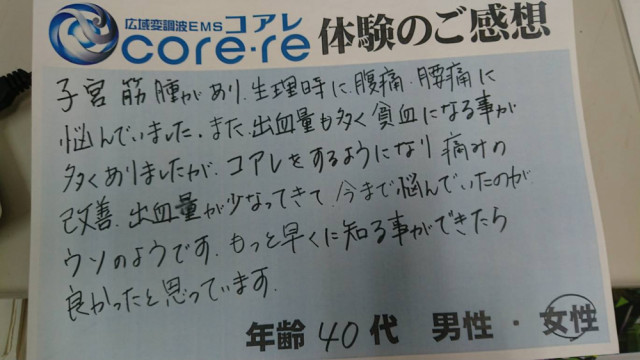 広域変調波EMSコアレ
core·re 体験のご感想
子宮筋腫があり、生理時に、腹痛、腰痛に
悩んでいました。また、出血量も多く貧血になる事が
多くありましたが、コアレをするようになり痛みの
改善、出血量が少なってきて、今まで悩んでいたのが
ウソのようです。もっと早くに知る事ができたら
良かったと思っています。
年齢 40代 男性・女性